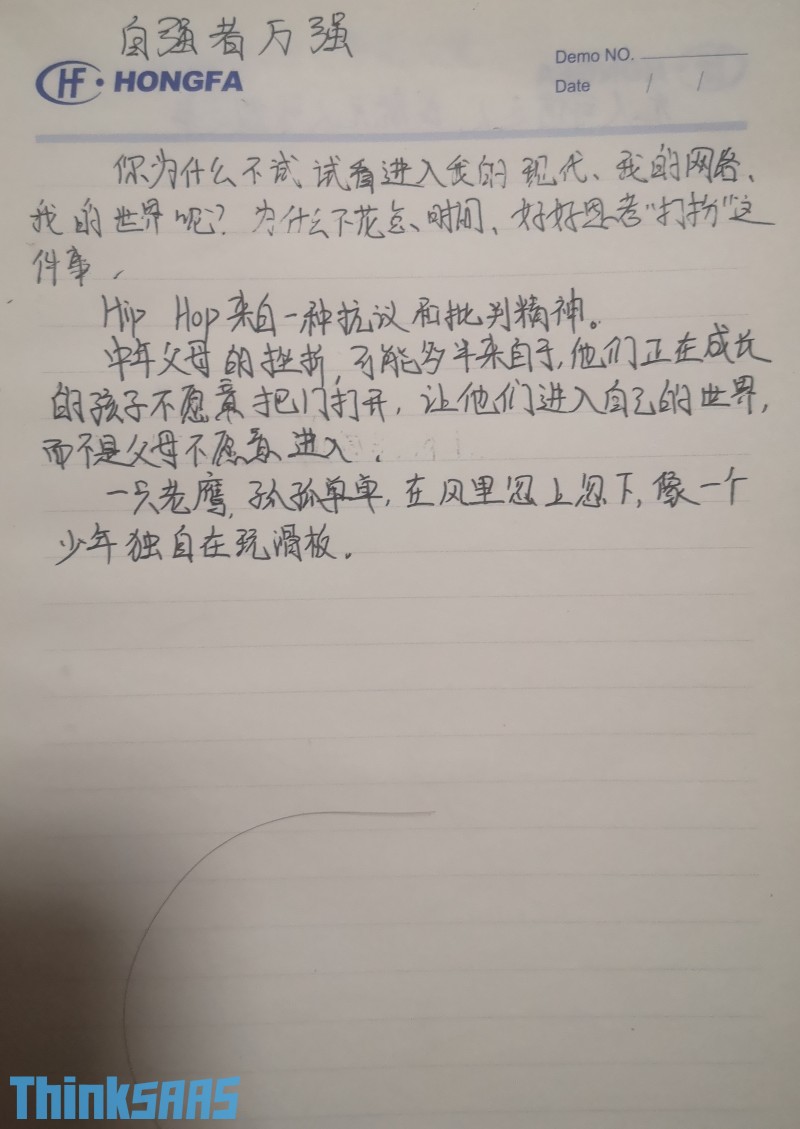 自强者万强
HF·HONGFA
Demo NO.
Date / /
你为什么不试试看进入我的现代、我的网络、
我的世界呢？为什么不花点时间，好好思考“打扮”这
件事，
Hip Hop来自一种抗议和批判精神。
中年父母的挫折，可能多半来自于，他们正在成长
的孩子不愿意把门打开，让他们进入自己的世界，
而不是父母不愿意进入．
一只老鹰，孤孤单单，在风里忽上忽下，像一个
少年独自在玩滑板．
ThinkSAAS